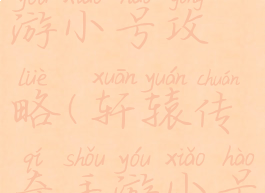 yóu xiǎo hào gōng
游小号攻
lüè xuān yuán chuán
略(轩辕传
qí shǒu yóu xiǎo hào
奇手游小号